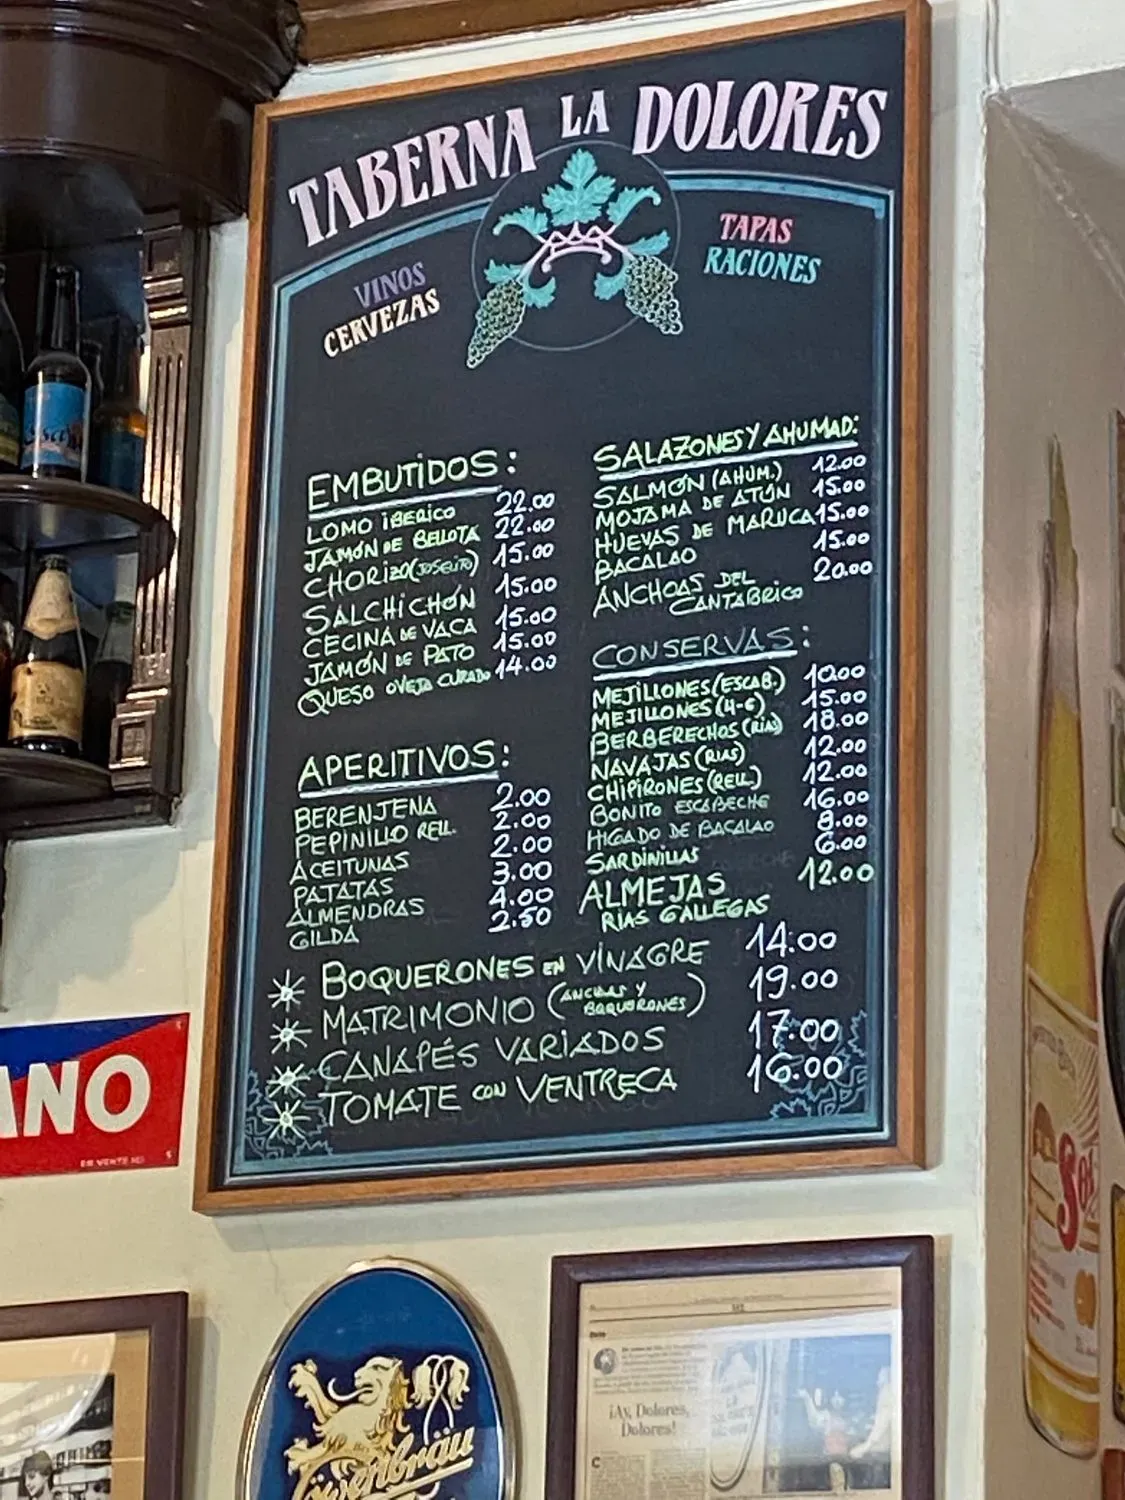 TABERNA LA DOLORES
VINOS
CERVEZAS
TAPAS
RACIONES
EMBUTIDOS:
LOMO iBERICO 22.00
JAMÓN DE BELLOTA 22.00
CHORIZO (JOSELITO) 15.00
SALCHICHÓN 15.00
CECINA DE VACA 15.00
JAMÓN DE PATO 15.00
QUESO OVEJA CURADO 14.00
APERITIVOS:
BERENJENA 2.00
PEPINILLO RELL. 2.00
ACEITUNAS 2.00
PATATAS 3.00
ALMENDRAS 4.00
GILDA 2.50
SALAZONES Y AHUMAD:
SALMÓN (AHUM.) 12.00
MOJAMA DE ATÚN 15.00
HUEVAS DE MARUCA 15.00
BACALAO 15.00
ANCHOAS DEL 20.00
CANTABRICO
CONSERVAS:
MEJILLONES (ESCAB.) 10.00
MEJILLONES (4-6) 15.00
BERBERECHOS (RIAS) 18.00
NAVAJAS (RIAS) 12.00
CHIPIRONES (RELL.) 12.00
BONITO ESCABECHE 16.00
HIGADO DE BACALAO 8.00
SARDINILLAS 6.00
ALMEJAS 12.00
RIAS GALLEGAS
BOQUERONES EN VINAGRE 14.00
MATRIMONIO (ANCHOAS Y BOQUERONES) 19.00
CANAPÉS VARIADOS 17.00
TOMATE CON VENTRECA 16.00
ANO
Löwenbräu
¡Ay, Dolores,
Dolores!
Sol